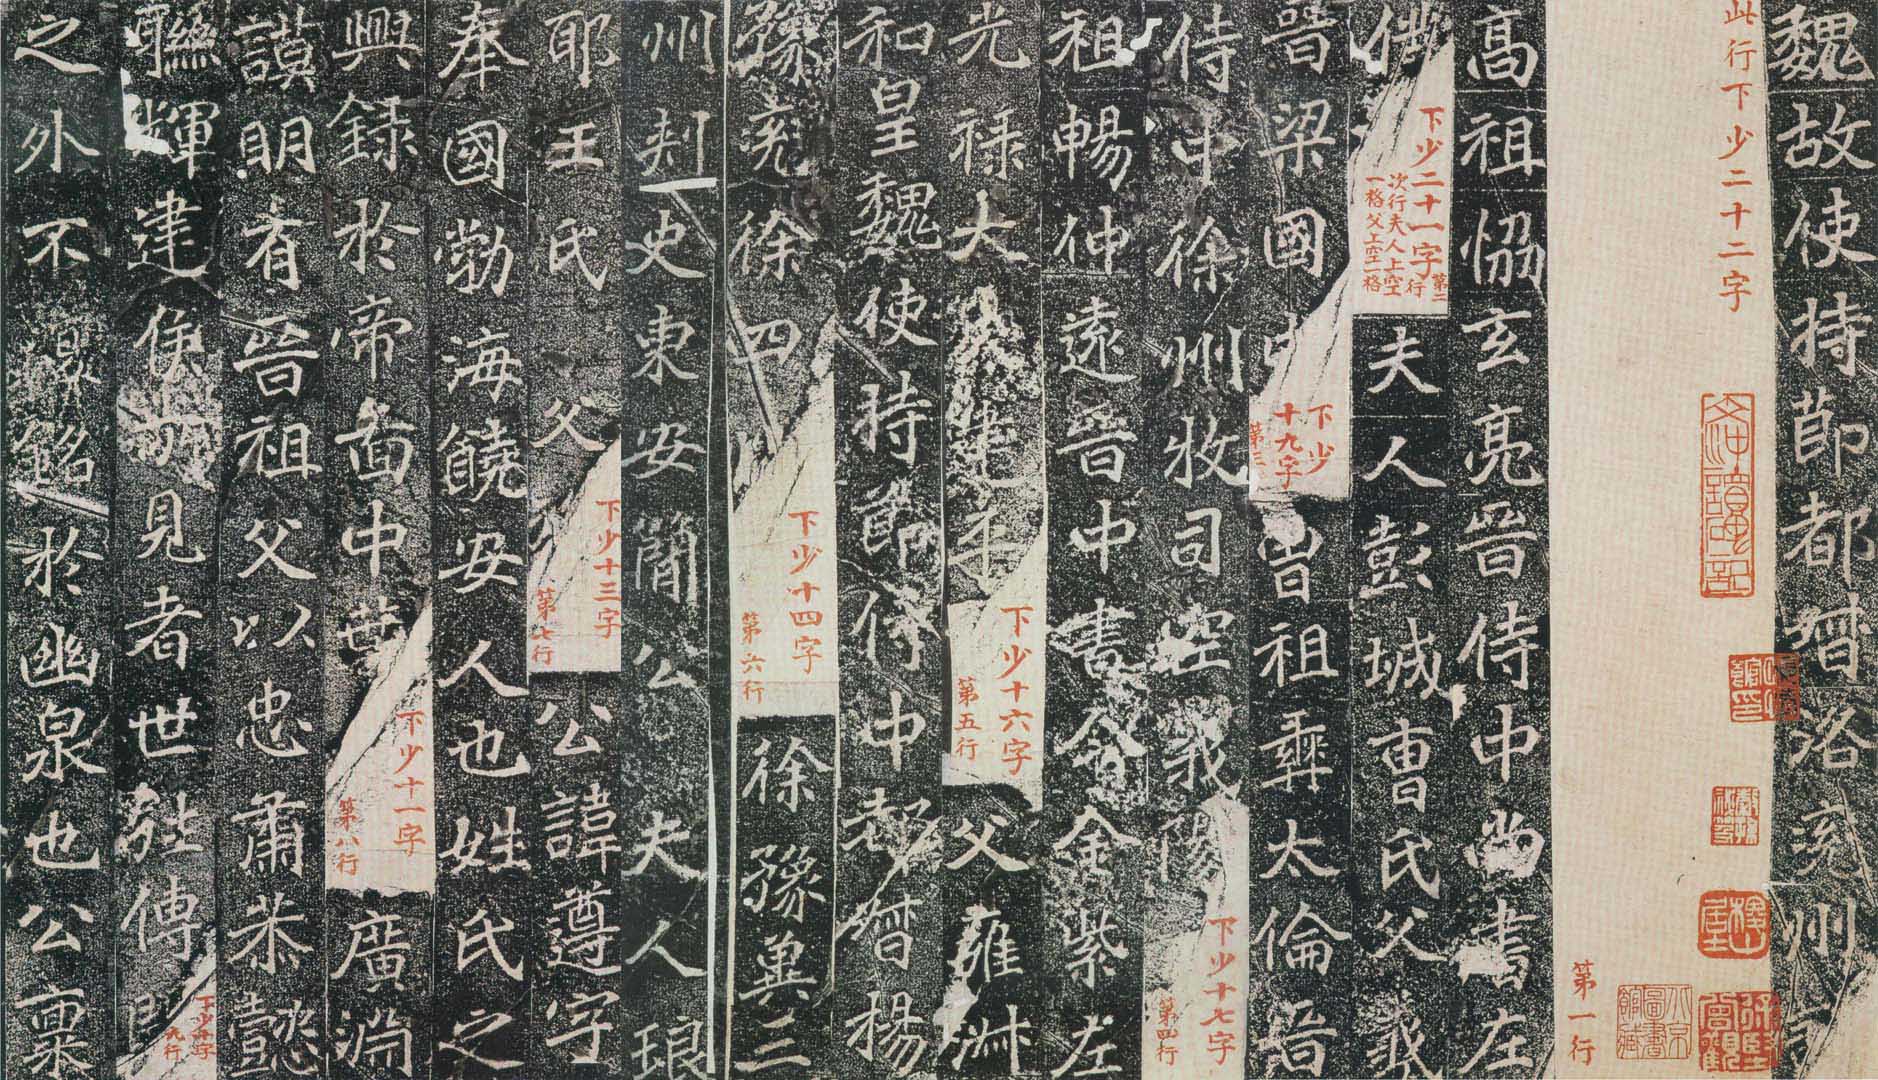 魏故使持節都督洛兖州
此行下少二十二字
第一行
高祖協玄亮晉侍中尚書左
僕
下少二十一字
第二行
次行夫人上空
一格父上空一格
夫人彭城曹氏父義
晉梁國中
下少
十九字
第三
曾祖彝太倫晉
侍中徐州牧司空義陽
下少十七字
第四行
祖暢仲遠晉中書令金紫左
光祿大建平
下少十六字
第五行
父雍淑
和皇魏使持節侍中都督楊
豫兖徐四州
下少十四字
第六行
徐豫冀三
州刾史東安簡公夫人琅
耶王氏父
下少十三字
第七行
公諱遵字
奉國勃海饒安人也姓氏之
興錄於帝啚中葉
下少十一字
第八行
廣淵
謨明有晉祖父以忠肅恭懿
聮輝建侯見者世傳
下少十字
九行
之外不復銘於幽泉也公稟